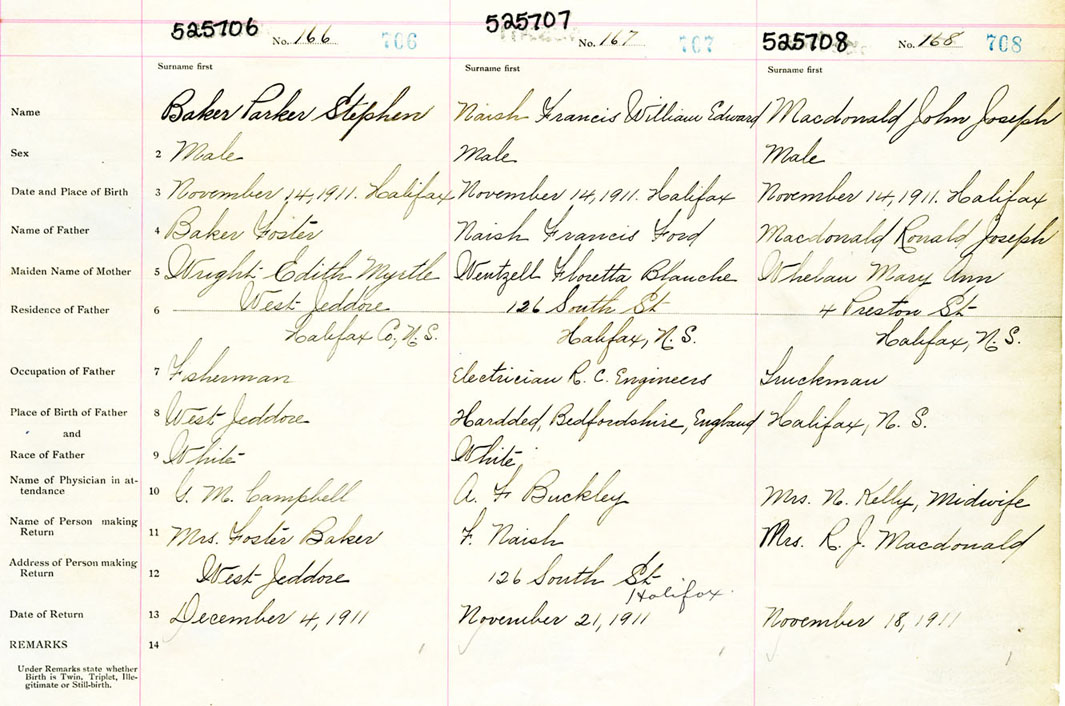 525706 No. 166 706
525707 No. 167 707
525708 No. 168 708
Surname first Surname first Surname first
Name Baker Parker Stephen Naish Francis William Edward Macdonald John Joseph
Sex 2 Male Male Male
Date and Place of Birth 3 November 14, 1911. Halifax November 14, 1911. Halifax November 14, 1911. Halifax
Name of Father 4 Baker Foster Naish Francis Ford Macdonald Ronald Joseph
Maiden Name of Mother 5 Wright Edith Myrtle Wentzell Floretta Blanche Whelan Mary Ann
Residence of Father 6 West Jeddore 126 South St 4 Preston St
Halifax Co, N.S. Halifax, N.S. Halifax, N.S.
Occupation of Father 7 Fisherman Electrician R. C. Engineers Truckman
Place of Birth of Father 8 West Jeddore Hardded, Bedfordshire, England Halifax, N. S.
and
Race of Father 9 White White
Name of Physician in at-
tendance 10 G. M. Campbell A. F Buckley Mrs. N. Kelly, Midwife
Name of Person making
Return 11 Mrs. Foster Baker F. Naish Mrs. R. J. Macdonald
Address of Person making
Return 12 West Jeddore 126 South St
Halifax.
Date of Return 13 December 4, 1911 November 21, 1911 November 18, 1911
REMARKS 14
Under Remarks state whether
Birth is Twin, Triplet, Ille-
gitimate or Still-birth.